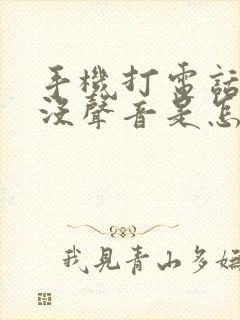 手機打電話
沒聲音是怎
我見青山多嫵